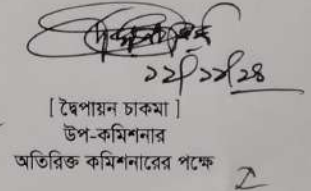 ১২/১২/২৪
[ দ্বৈপায়ন চাকমা ]
উপ-কমিশনার
অতিরিক্ত কমিশনারের পক্ষে